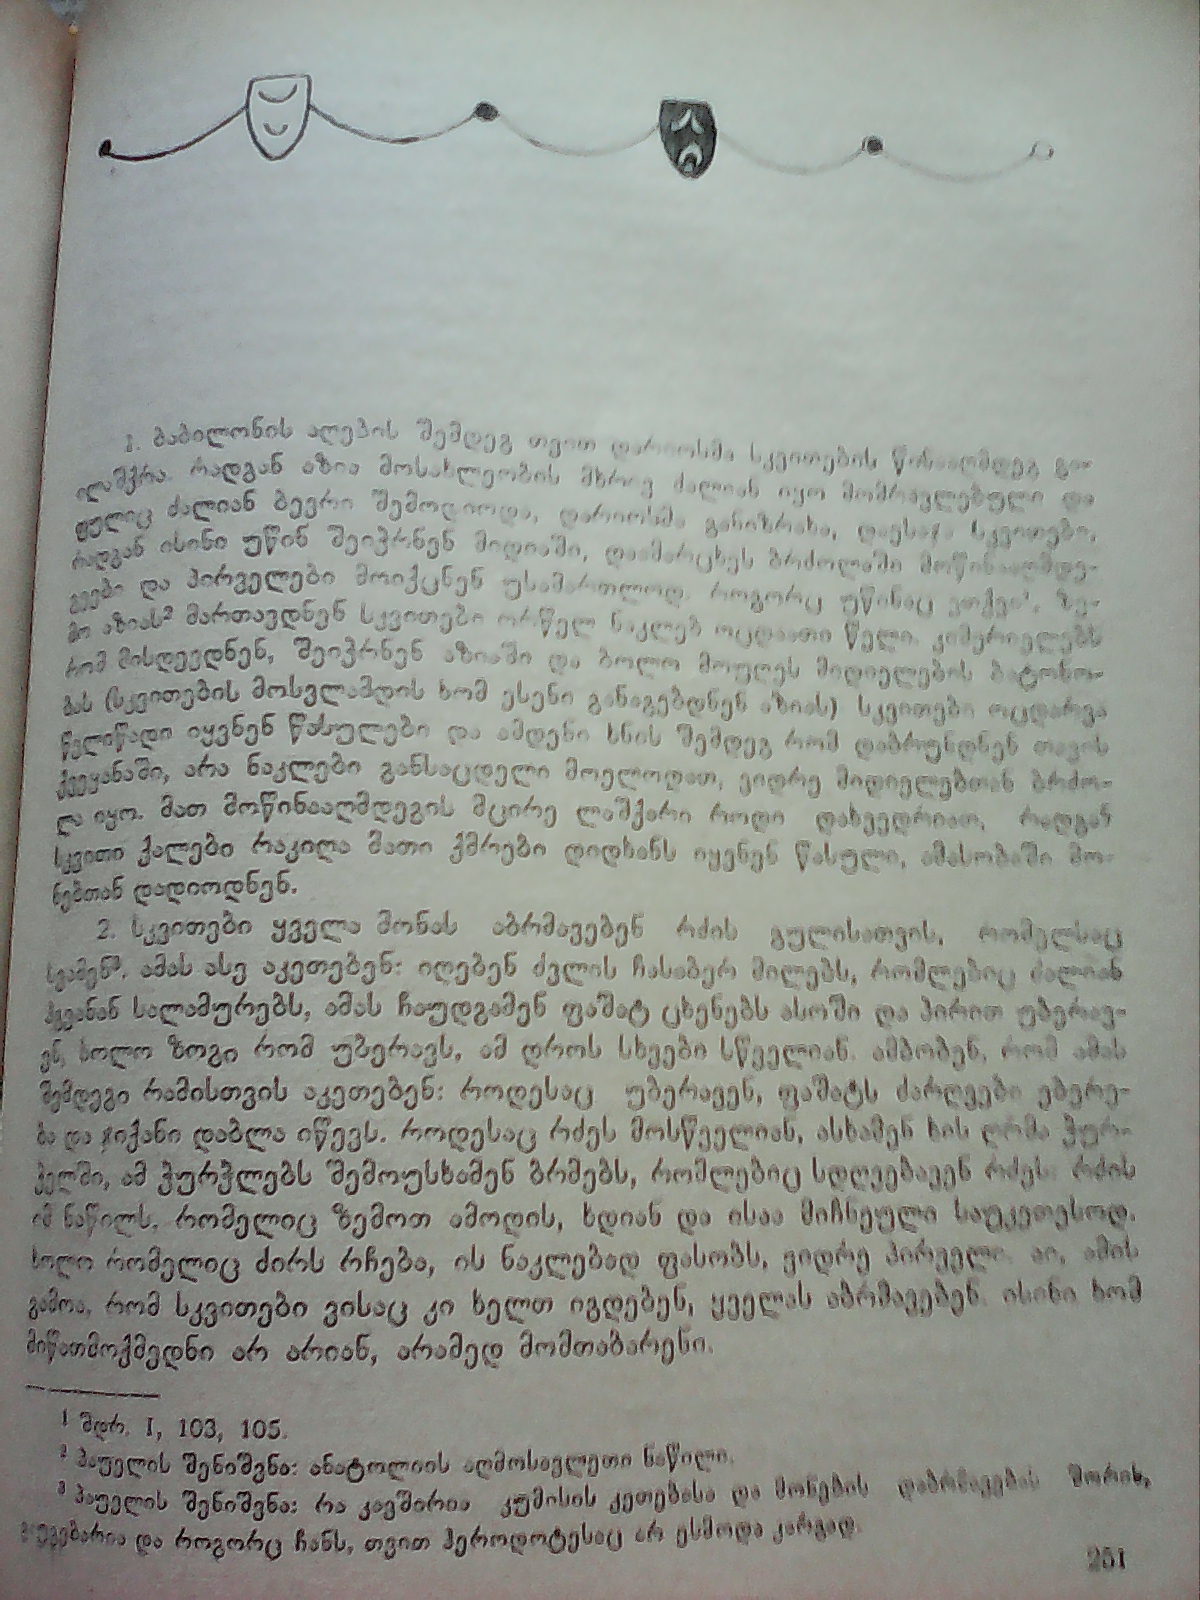 1. ბაბილონის აღების შემდეგ თვით დარიოსმა სკვითების წინააღმდეგ გა-
ილაშქრა. რადგან აზია მოსახლეობის მხრივ ძალიან იყო მომრავლებული და
ფულიც ძალიან ბევრი შემოდიოდა, დარიოსმა განიზრახა, დაესაჯა სკვითები,
რადგან ისინი უწინ შეიჭრნენ მიდიაში, დაამარცხეს ბრძოლაში მოწინააღმდე-
გეები და პირველები მოიქცნენ უსამართლოდ. როგორც უწინაც ვთქვი¹, ზე-
მო აზიას² მართავდნენ სკვითები ორ წელ ნაკლებ ოცდაათი წელი. კიმერიელებს
რომ მისდევდნენ, შეიჭრნენ აზიაში და ბოლო მოუღეს მიდიელების ბატონო-
ბას (სკვითების მოსვლამდის ხომ ესენი განაგებდნენ აზიას) სკვითები ოცდარვა
წელიწადი იყვნენ წასულები და ამდენი ხნის შემდეგ რომ დაბრუნდნენ თავის
ქვეყანაში, არა ნაკლები განსაცდელი მოელოდათ, ვიდრე მიდიელებთან ბრძო-
ლა იყო. მათ მოწინააღმდეგის მცირე ლაშქარი როდი დახვედრიათ, რადგან
სკვითი ქალები რაკიღა მათი ქმრები დიდხანს იყვნენ წასული, ამასობაში მო-
ნებთან დადიოდნენ.
2. სკვითები ყველა მონას აბრმავებენ რძის გულისათვის, რომელსაც
სვამენ³. ამას ასე აკეთებენ: იღებენ ძვლის ჩასაბერ მილებს, რომლებიც ძალიან
ჰგვანან სალამურებს, ამას ჩაუდგამენ ფაშატ ცხენებს ასოში და პირით უბერავ-
ენ, ხოლო ზოგი რომ უბერავს, ამ დროს სხვები სწველიან. ამბობენ, რომ ამას
შემდეგი რამისთვის აკეთებენ: როდესაც უბერავენ, ფაშატს ძარღვები ებერე-
ბა და ჯიქანი დაბლა იწევს. როდესაც რძეს მოსწველიან, ასხამენ ხის ღრმა ჭურ-
ჭელში, ამ ჭურჭლებს შემოუსხამენ ბრმებს, რომლებიც სდღვებავენ რძეს. რძის
იმ ნაწილს, რომელიც ზემოთ ამოდის, ხდიან და ისაა მიჩნეული საუკეთესოდ,
ხოლო რომელიც ძირს რჩება, ის ნაკლებად ფასობს, ვიდრე პირველი. აი, ამის
გამოა, რომ სკვითები ვისაც კი ხელთ იგდებენ, ყველას აბრმავებენ. ისინი ხომ
მიწათმოქმედნი არ არიან, არამედ მომთაბარენი.
¹ შდრ. I, 103, 105.
² პაუელის შენიშვნა: ანატოლიის აღმოსავლეთი ნაწილი.
³ პაუელის შენიშვნა: რა კავშირია კუმისის კეთებასა და მონების დაბრმავებას შორის,
გაუგებარია და როგორც ჩანს, თვით ჰეროდოტესაც არ ესმოდა კარგად.
201